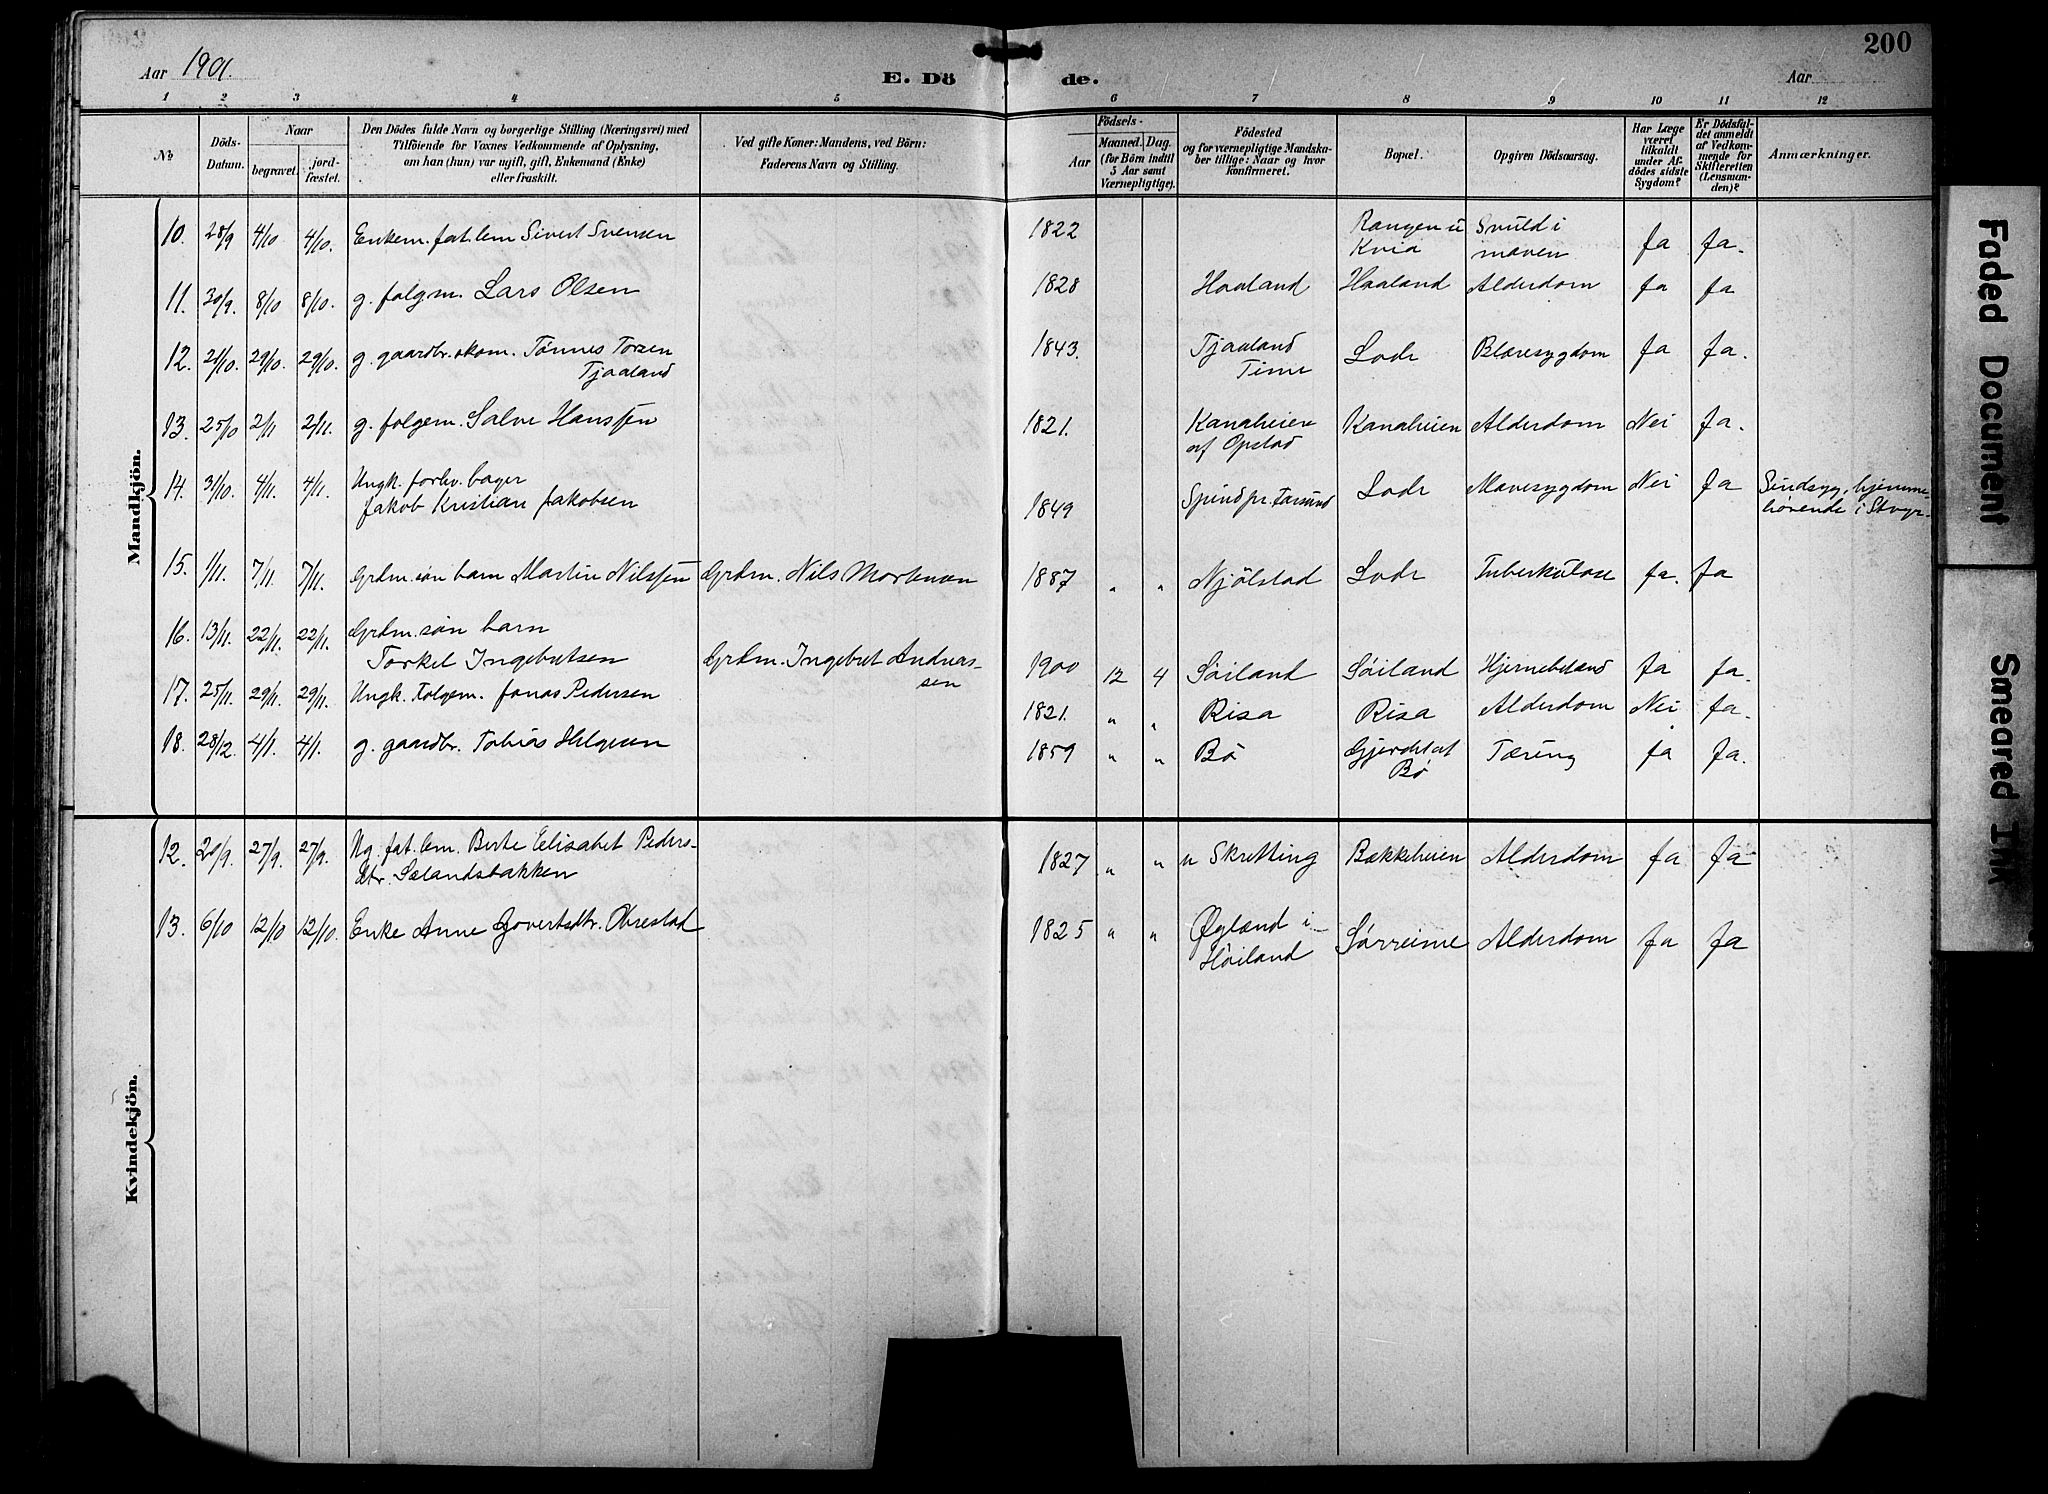 200
Aar 1901.
E. Dö de.
Aar
1 2 3 4 5 6 7 8 9 10 11 12
No
Döds-
Datum.
Naar
begravet.
jord-
fæstet.
Den Dödes fulde Navn og borgerlige Stilling (Næringsvei) med
Tilföiende for Voxnes Vedkommende af Oplysning,
om han (hun) var ugift, gift, Enkemand (Enke)
eller fraskilt.
Ved gifte Koner: Mandens, ved Börn:
Faderens Navn og Stilling.
Födsels-
Aar
Maaned. Dag.
(for Börn indtil
5 Aar samt
Værnepligtige).
Födested
og for værnepligtige Mandska-
ber tillige: Naar og hvor
konfirmeret.
Bopæl.
Opgiven Dödsaarsag.
Har Læge
været
tilkaldt
under Af-
dödes sidste
Sygdom?
Er Dödsfal-
det anmeldt
af Vedkom-
mende for
Skifteretten
(Lensman-
den)?
Anmærkninger.
Mandkjön.
10. 28/9 4/10 4/10. Enkem. fat. lem Sivert Svensen 1822 Kvia Svuld i
maven ja ja.
11. 30/9. 8/10 8/10. g. folgm. Lars Olsen 1828 Haaland Haaland Alderdom ja ja
12. 21/10. 29/10. 29/10. g. gaardbr. skom. Tønnes Torsen
Tjaaland 1843. Tjaaland
Time Lode Blæresygdom ja ja.
13. 25/10 2/11 2/11. g. folgem. Salve Hanssen 1821. Kanaheien
af Opstad Kanaheien Alderdom Nei ja.
14. 31/10. 4/11. 4/11. Ungk. forhv. bager
Jakob Kristian Jakobsen 1849 Spind pr. Farsund Lode Mavesygdom Nei ja Sindsyg, hjemme-
hørende i
15. 1/11. 7/11. 7/11. Grdm. søn barn Martin Nilssen Grdm. Nils Mortensen 1887 " " Njölstad Lode Tuberkulose ja. ja
16. 13/11. 22/11. 22/11. Grdm. søn barn
Torkel Ingebretsen Grdm. Ingebret Andreas-
sen 1900 12 4 Søiland Søiland Hjernebetænd ja ja.
17. 25/11. 29/11. 29/11. Ungk. Folgem. Jonas Pedersen 1821. " " Risa Risa Alderdom Nei ja.
18. 28/12. 4/1. 4/1. g. gaardbr. Tobias Helgesen 1859 " " Bö Gjerdet af
Bø Tæring ja ja.
Kvindekjön.
12. 20/9. 27/9. 27/9. Ug. fat. lem. Berte Elisabet Peders-
dtr. Sælandsbakken 1827 " " u Skretting Bækkeheien Alderdom ja ja
13. 6/10 12/10 12/10. Enke Anne Govertsdtr. Obrestad 1825 " " Øgland i
Høiland Sørreime Alderdom ja ja
Faded Document
Smeared Ink